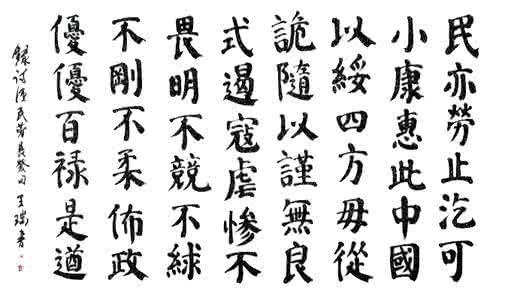 民亦勞止汔可
小康惠此中國
以綏四方毋從
詭隨以謹無良
式遏寇虐慘不
畏明不競不絿
不剛不柔佈政
優優百禄是遒
錄詩經民勞長發句 王瑞書